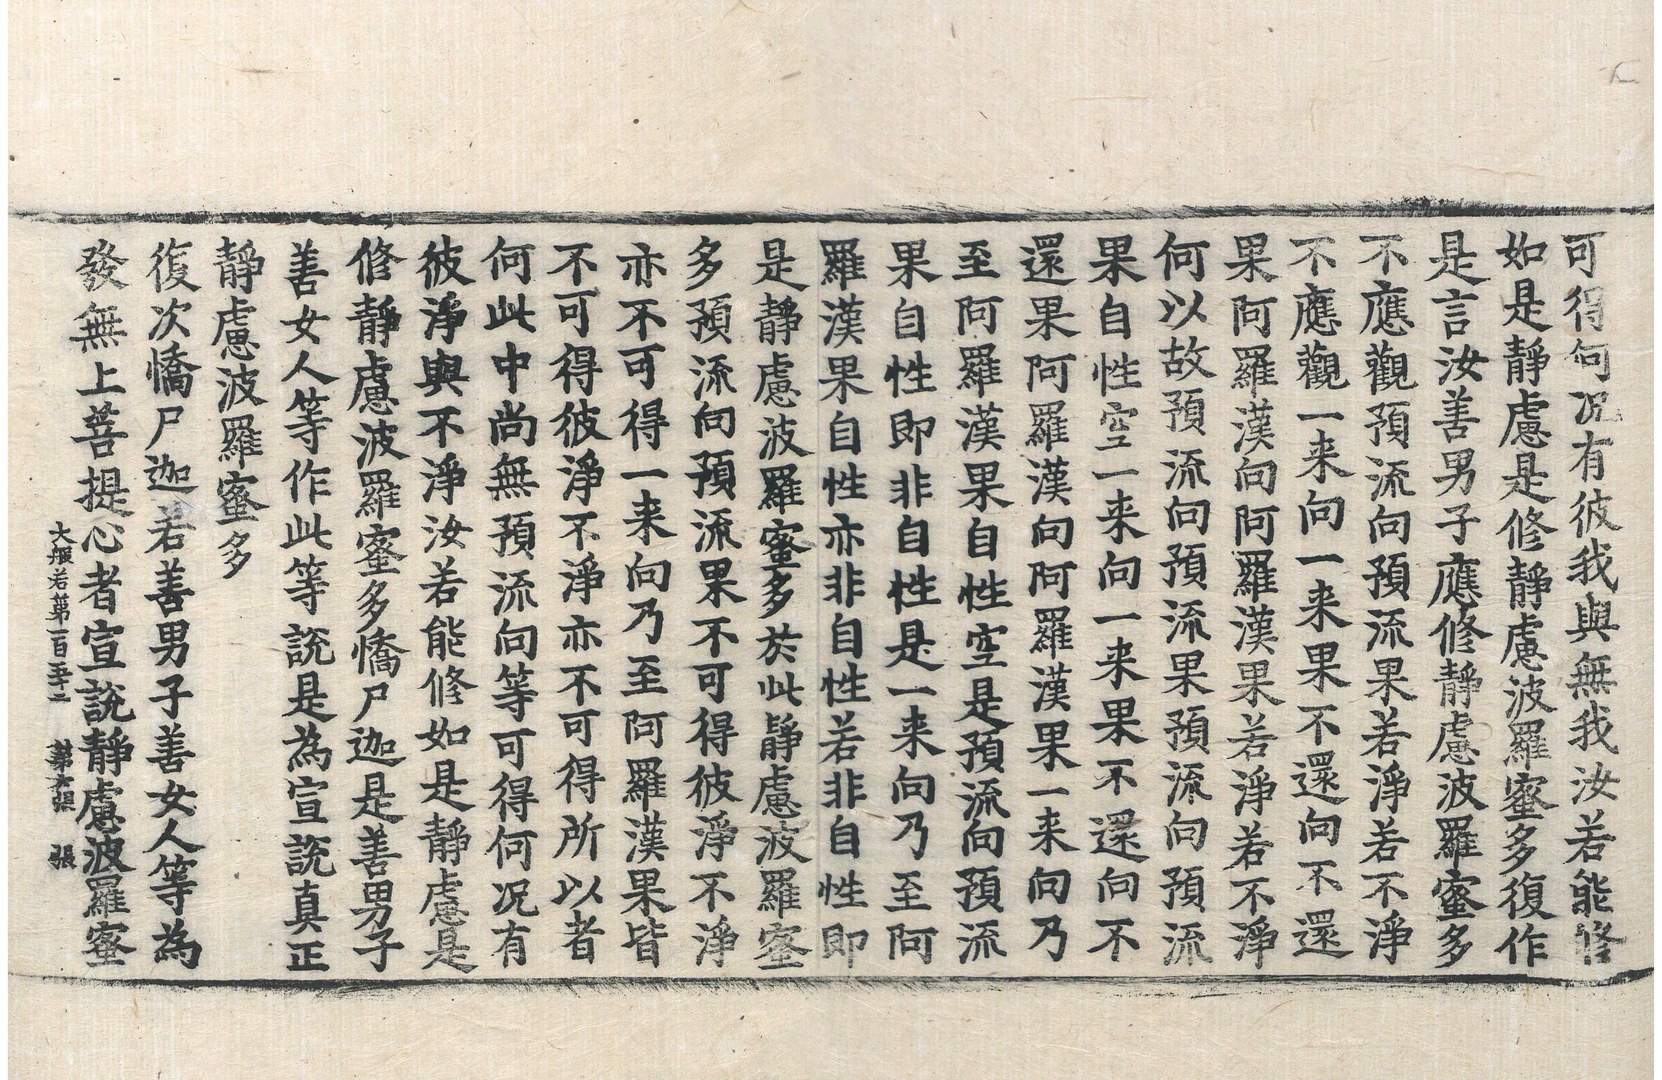 可得何况有彼我與無我汝若能修
如是靜慮是修靜慮波羅蜜多復作
是言汝善男子應修靜慮波羅蜜多
不應觀預流向預流果若淨若不淨
不應觀一来向一来果不還向不還
果阿羅漢向阿羅漢果若淨若不淨
何以故預流向預流果預流向預流
果自性空一来向一来果不還向不
還果阿羅漢向阿羅漢果一来向乃
至阿羅漢果自性空是預流向預流
果自性即非自性是一来向乃至阿
羅漢果自性亦非自性若非自性即
是靜慮波羅蜜多於此靜慮波羅蜜
多預流向預流果不可得彼淨不淨
亦不可得一来向乃至阿羅漢果皆
不可得彼淨不淨亦不可得所以者
何此中尚無預流向等可得何况有
彼淨與不淨汝若能修如是靜慮是
修靜慮波羅蜜多憍尸迦是善男子
善女人等作此等說是為宣說真正
靜慮波羅蜜多
復次憍尸迦若善男子善女人等為
發無上菩提心者宣說靜慮波羅蜜
大般若第一百五十二 第六張 張